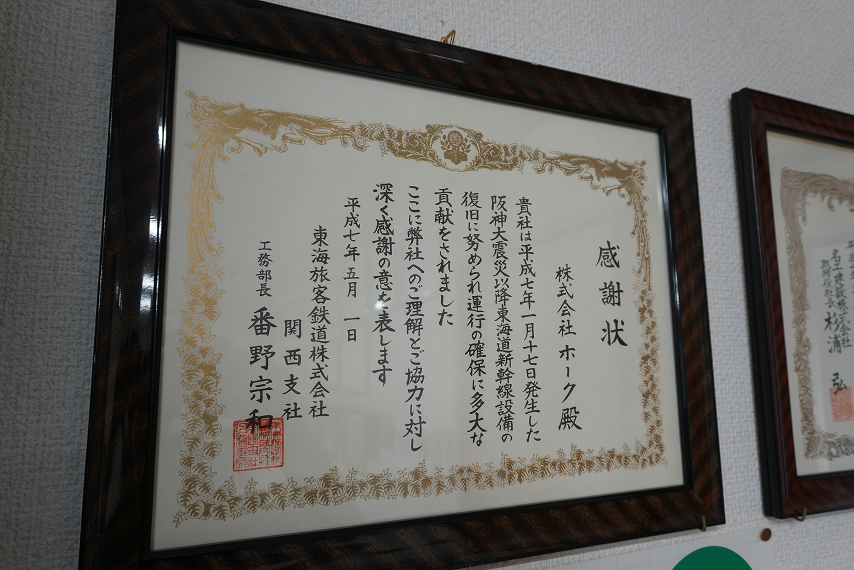 感謝状
株式会社 ホーク殿
貴社は平成七年一月十七日発生した
阪神大震災以降東海道新幹線設備の
復旧に努められ運行の確保に多大な
貢献をされました
ここに弊社へのご理解とご協力に対し
深く感謝の意を表します
平成七年 五月 一日
東海旅客鉄道株式会社
関西支社
工務部長 番野宗和
杉浦 弘